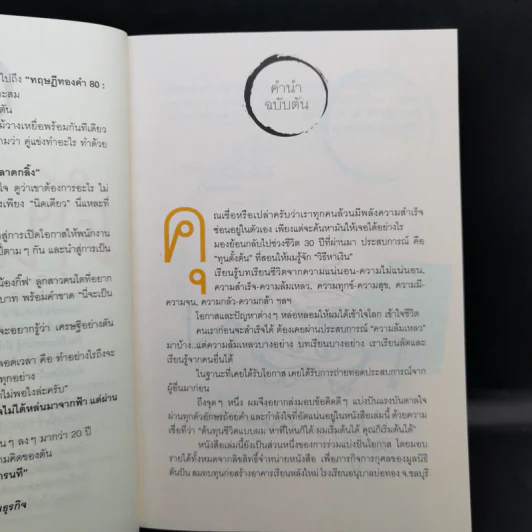 ไปถึง "ทฤษฎีทองคำ 80 :
ะสม
ตัน
ม้วางเหยื่อพร้อมกันทีเดียว
ามว่า คู่แข่งทำอะไร ทำด้วย
ลาดกลิ้ง"
ใจ ดูว่าเขาต้องการอะไร ไม่
เพียง "นิดเดียว" นี่แหละที่
สู่การเปิดโอกาสให้พนักงาน
ปี่ตามๆ กัน และนำสู่การเป็น
น้องกิ๊ฟ" ลูกสาวคนโตที่อยาก
บาท พร้อมคำขาด "นี่จะเป็น
จะอยากรู้ว่า เศรษฐีอย่างตัน
ลอดเวลา คือ ทำอย่างไรถึงจะ
ทุกอย่าง
าไม่พอใงล่ะครับ"
ไม่ได้หล่นมาจากฟ้า แต่ผ่าน
นๆ ลงๆ มากว่า 20 ปี
วามคิดของตัน
ารนที"
ธุรกิจ
คำนำ
ฉบับตัน
คุณเชื่อหรือเปล่าครับว่าเราทุกคนล้วนมีพลังความสำเร็จ
ซ่อนอยู่ในตัวเอง เพียงแต่จะค้นหามันให้เจอได้อย่างไร
มองย้อนกลับไปช่วงชีวิต 30 ปีที่ผ่านมา ประสบการณ์ คือ
"ทุนตั้งต้น" ที่สอนให้ผมรู้จัก "วิธีหาเงิน"
เรียนรู้บทเรียนชีวิตจากความแน่นอน-ความไม่แน่นอน,
ความสำเร็จ-ความล้มเหลว, ความทุกข์-ความสุข, ความมี-
ความจน, ความกลัว-ความกล้า ฯลฯ
โอกาสและปัญหาต่างๆ หล่อหลอมให้ผมได้เข้าใจโลก เข้าใจชีวิต
คนเราก่อนจะสำเร็จได้ ต้องเคยผ่านประสบการณ์ "ความล้มเหลว"
มาบ้าง..แต่ความล้มเหลวบางอย่าง บทเรียนบางอย่าง เราเรียนลัดและ
เรียนรู้จากคนอื่นได้
ในฐานะที่เคยได้รับโอกาส เคยได้รับการถ่ายทอดประสบการณ์จาก
ผู้อื่นมาก่อน
ถึงจุดๆ หนึ่ง ผมจึงอยากส่งมอบข้อคิดดีๆ แบ่งปันแรงบันดาลใจ
ผ่านทุกตัวอักษรถ้อยคำ และกำลังใจที่อัดแน่นอยู่ในหนังสือเล่มนี้ ด้วยความ
เชื่อที่ว่า "ต้นทุนชีวิตแบบผม หาที่ไหนก็ได้ ผมเริ่มต้นได้ คุณก็เริ่มต้นได้"
หนังสือเล่มนี้ยังเป็นส่วนหนึ่งของการร่วมแบ่งปันโอกาส โดยมอบ
รายได้ทั้งหมดจากลิขสิทธิ์จำหน่ายหนังสือ เพื่อภารกิจการกุศลของมูลนิธิ
ตันปัน สมทบทุนก่อสร้างอาคารเรียนหลังใหม่ โรงเรียนอนุบาลบ่อทอง จ.ชลบุรี